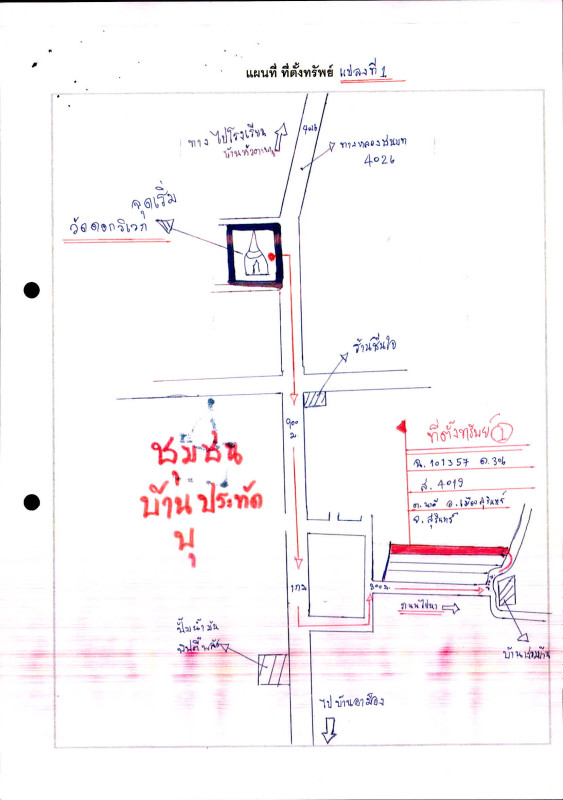 แผนที่ ที่ตั้งทรัพย์ แปลงที่ 1
ทาง ไปโรงเรียน
4026
ทางหลวงชนบท
4026
จุดเริ่ม
วัดดอกริเวก
ร้านชื่นใจ
900
ม
ที่ตั้งทรัพย์ 1
ฉ. 101357 ด.306
ส. 4019
ต. นาดี อ. เมืองสุรินทร์
จ. สุรินทร์
ชุมชน
บ้าน ประทัด
บุ
1 กม
200 ม.
ถนนไปนา
ปั๊มน้ำมัน
ไป บ้านอาม็อง